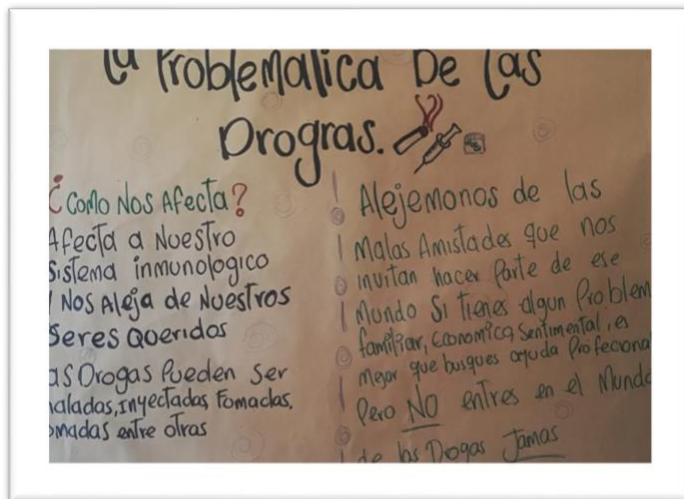 La Problematica De Las
Drogras.
¿Como Nos Afecta?
Afecta a Nuestro
Sistema inmunologico
Y Nos Aleja de Nuestros
Seres Queridos
as Drogas Pueden Ser
haladas, inyectadas, Fomadas,
omadas entre otras
Alejemonos de las
Malas Amistades que nos
invitan hacer Parte de ese
Mundo Si tienes algun Problem
familiar, Economica, Sentimental, es
mejor que busques ayuda Profeciona
Pero NO entres en el Mundo
de las Drogas Jamas